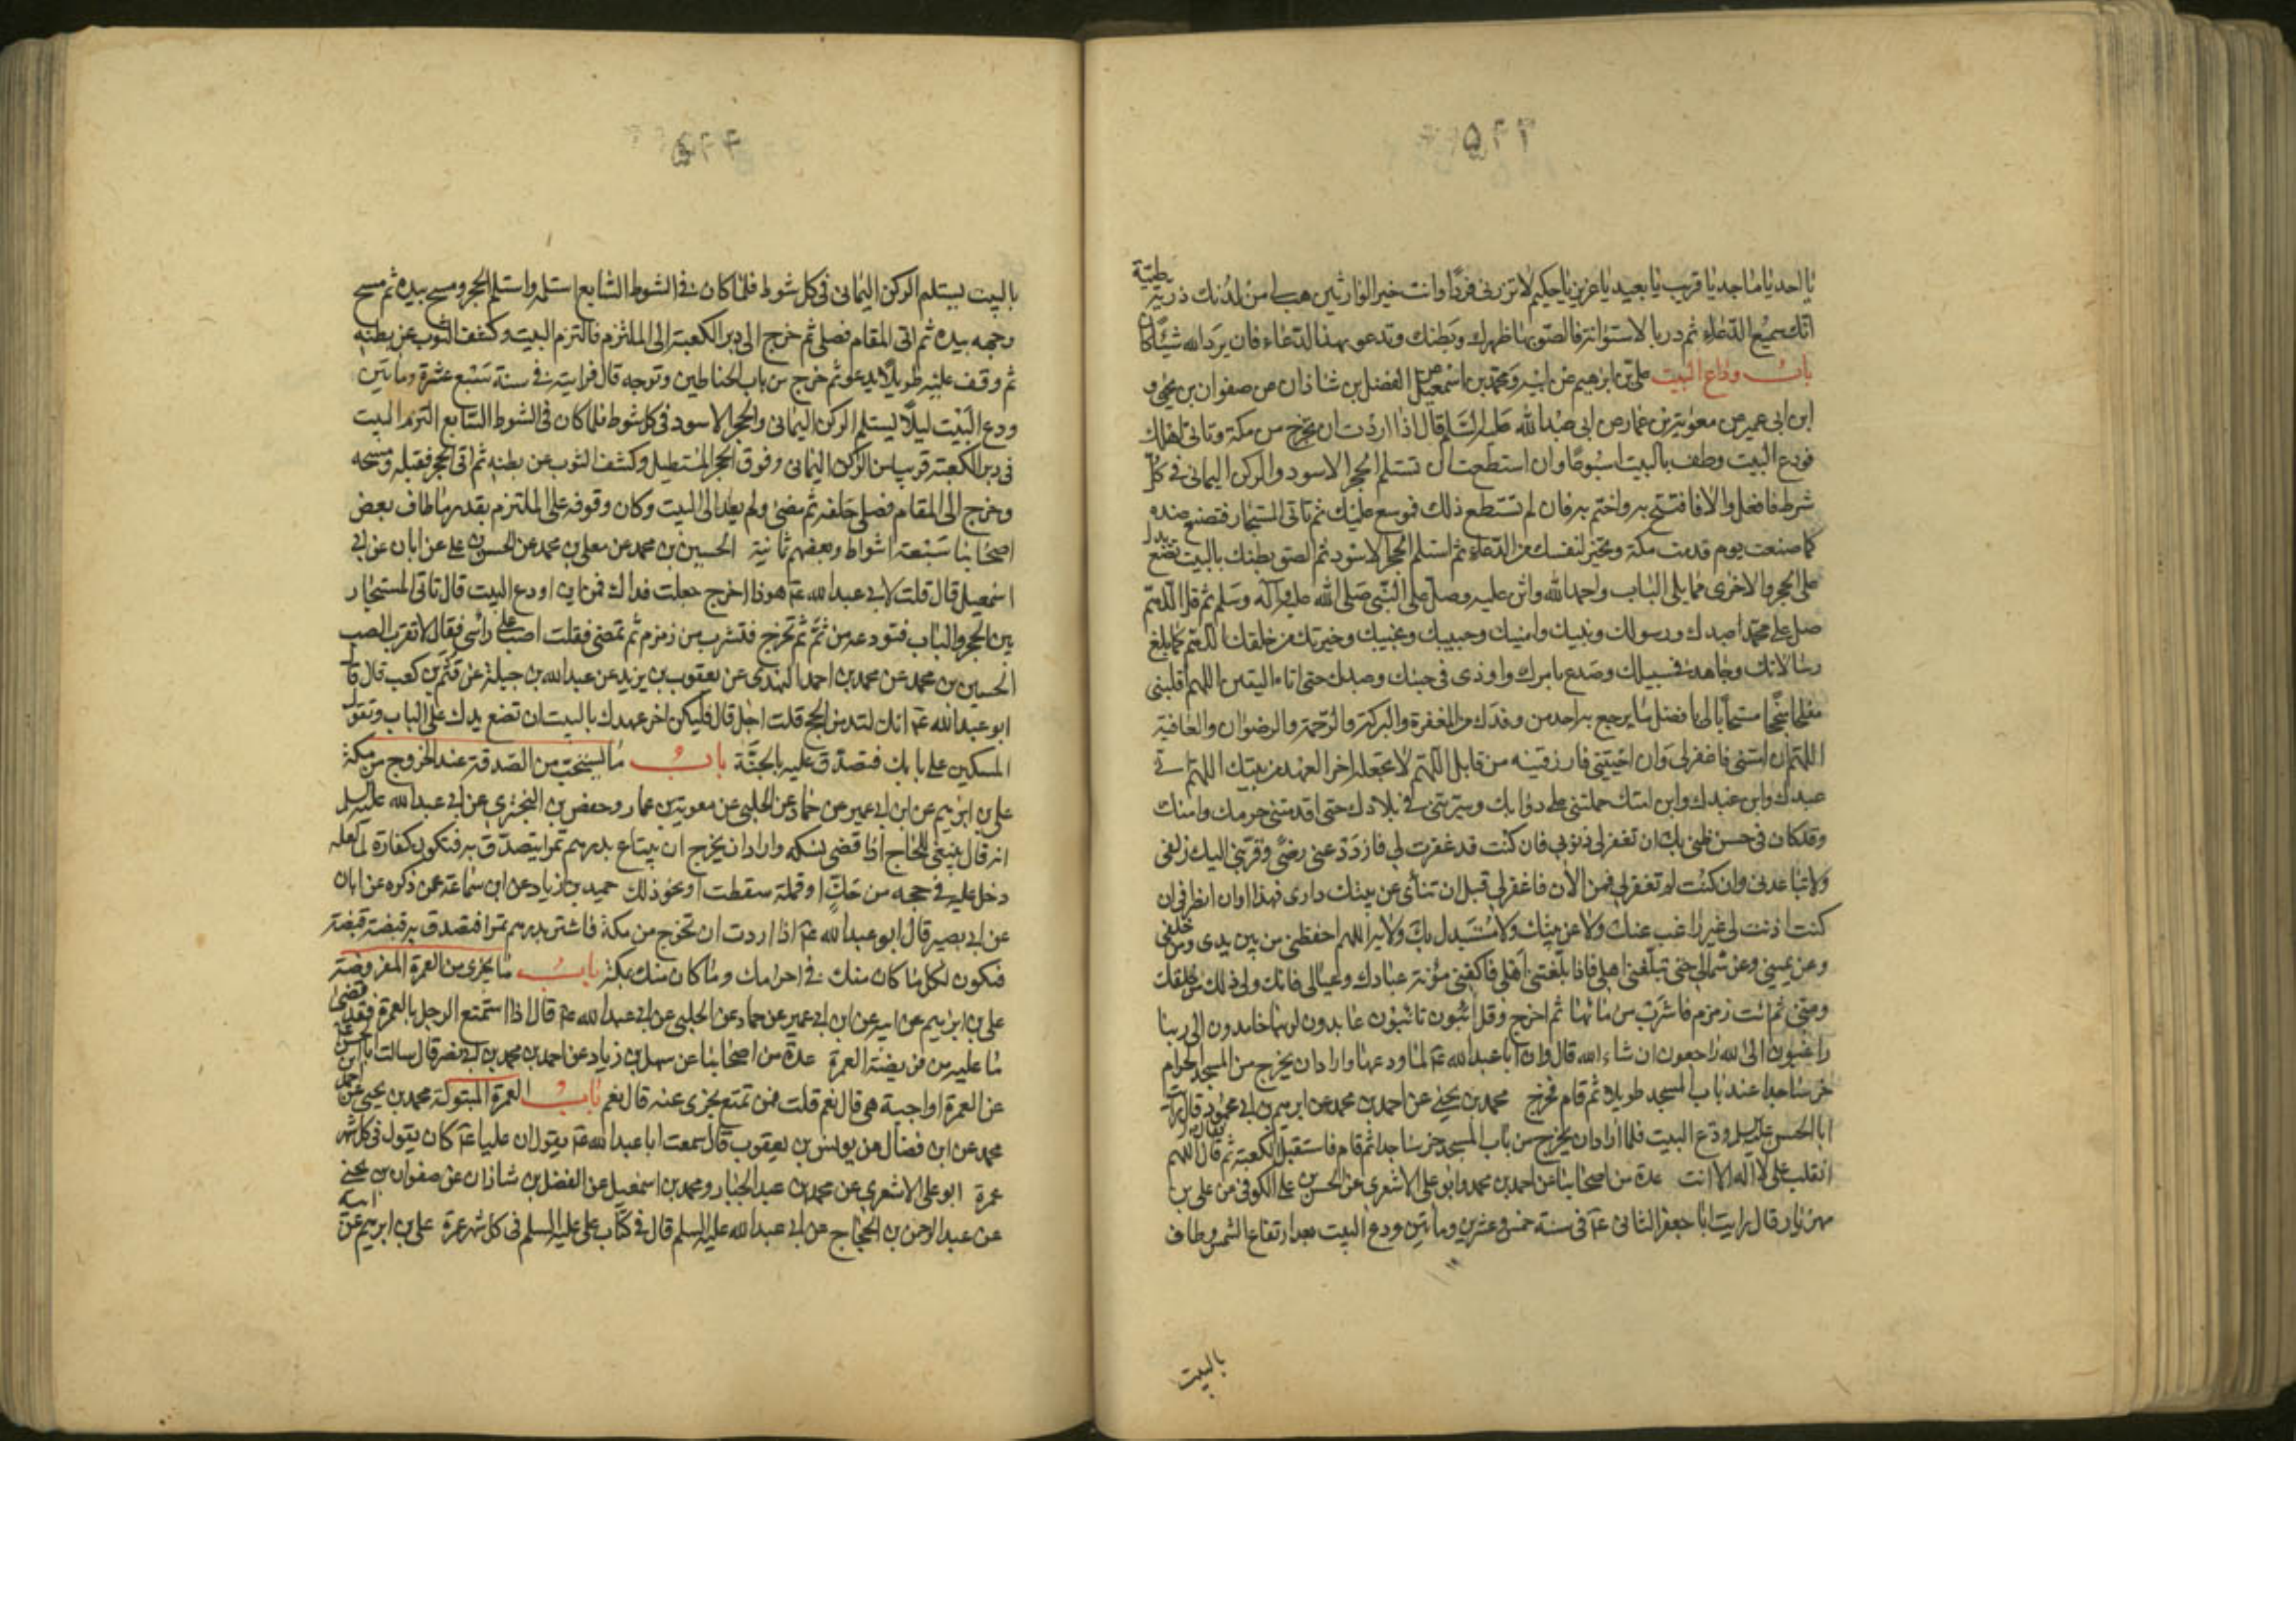 يا احد يا ماجد يا قريب يا بعيد يا عزيز يا حكيم لا تذرني فردا وانت خير الوارثين هب لي من لدنك ذرية طيبة
انك سميع الدعاء ثم در بالاسطوانة فالصق بها ظهرك وبطنك وتدعو بهذا الدعاء فان يرد الله شيئا كان
باب وداع البيت علي بن ابرهيم عن ابيه ومحمد بن اسمعيل عن الفضل بن شاذان عن صفوان بن يحيى و
ابن ابي عمير عن معوية بن عمار عن ابي عبد الله عليه السلم قال اذا اردت ان تخرج من مكة وتاتي اهلك
فودع البيت وطف بالبيت اسبوعا وان استطعت ان تستلم الحجر الاسود والركن اليماني في كل
شوط فافعل والا فافتتح به واختم به فان لم تستطع ذلك فموسع عليك ثم تاتي المستجار فتصنع عنده
كما صنعت يوم قدمت مكة وتخير لنفسك من الدعاء ثم استلم الحجر الاسود ثم الصق بطنك بالبيت تضع يدك
على الحجر والاخرى مما يلي الباب واحمد الله واثن عليه وصل على النبي صلى الله عليه وآله وسلم ثم قل اللهم
صل على محمد عبدك ورسولك ونبيك وامينك وحبيبك ونجيبك وخيرتك من خلقك اللهم كما بلغ
رسالاتك وجاهد في سبيلك وصدع بامرك واوذي في جنبك وعبدك حتى اتاه اليقين اللهم اقلبني
مفلحا منجحا مستجابا لي بافضل ما يرجع به احد من وفدك من المغفرة والبركة والرحمة والرضوان والعافية
اللهم ان امتني فاغفر لي وان احييتني فارزقنيه من قابل اللهم لا تجعله اخر العهد من بيتك اللهم اني
عبدك وابن عبدك وابن امتك حملتني على دوابك وسيرتني في بلادك حتى اقدمتني حرمك وامنك
وقد كان في حسن ظني بك ان تغفر لي ذنوبي فان كنت قد غفرت لي فازدد عني رضى وقربني اليك زلفى
ولا تباعدني وان كنت لم تغفر لي فمن الان فاغفر لي قبل ان تنأى عن بيتك داري فهذا اوان انصرافي ان
كنت اذنت لي غير راغب عنك ولا عن بيتك ولا مستبدل بك ولا به اللهم احفظني من بين يدي ومن خلفي
وعن يميني وعن شمالي حتى تبلغني اهلي فاذا بلغتني اهلي فاكفني مؤنة عبادك وعيالي فانك ولي ذلك من خلقك
ومني ثم ائت زمزم فاشرب من مائها ثم اخرج وقل ائبون تائبون عابدون لربنا حامدون الى ربنا
راغبون الى الله راجعون ان شاء الله قال وان ابا عبد الله عم لما ودعها واراد ان يخرج من المسجد الحرام
خر ساجدا عند باب المسجد طويلا ثم قام فخرج محمد بن يحيى عن احمد بن محمد عن ابرهيم بن ابي محمود قال رايت
ابا الحسن عليه السلم ودع البيت فلما اراد ان يخرج من باب المسجد خر ساجدا ثم قام فاستقبل الكعبة ثم قال اللهم
انقلب على لا اله الا انت عدة من اصحابنا عن احمد بن محمد وابو علي الاشعري عن الحسن بن علي الكوفي عن علي بن
مهزيار قال رايت ابا جعفر الثاني عم في سنة خمس وعشرين ومأتين ودع البيت بعد ارتفاع الشمس وطاف
بالبيت
بالبيت يستلم الركن اليماني في كل شوط فلما كان في الشوط السابع استلمه واستلم الحجر ومسح بيده ثم مسح
وجهه بيده ثم اتى المقام فصلى ثم خرج الى دبر الكعبة الى الملتزم فالتزم البيت وكشف الثوب عن بطنه
ثم وقف عليه طويلا يدعو ثم خرج من باب الحناطين وتوجه قال فرايته في سنة تسع عشرة ومأتين
ودع البيت ليلا يستلم الركن اليماني والحجر الاسود في كل شوط فلما كان في الشوط السابع التزم البيت
في دبر الكعبة قريبا من الركن اليماني وفوق الحجر المستطيل وكشف الثوب عن بطنه ثم اتى الحجر فقبله ومسحه
وخرج الى المقام فصلى خلفه ثم مضى ولم يعد الى البيت وكان وقوفه على الملتزم بقدر ما طاف بعض
اصحابنا سبعة اشواط وبعضهم ثمانية الحسين بن محمد عن معلى بن محمد عن الحسن بن علي عن ابان عن ابي
اسمعيل قال قلت لابي عبد الله عم هوذا اخرج جعلت فداك فمن اين اودع البيت قال تاتي المستجار
بين الحجر والباب فتودعه من ثم ثم تخرج فتشرب من زمزم ثم تمضي فقلت اصب على راسي فقال لا تقرب الصب
الحسين بن محمد عن محمد بن احمد النهدي عن يعقوب بن يزيد عن عبد الله بن جبلة عن قثم بن كعب قال قال
ابو عبد الله عم انك لتدمن الحج قلت اجل قال فليكن اخر عهدك بالبيت ان تضع يدك على الباب وتقول
المسكين على بابك فتصدق عليه بالجنة باب ما يستحب من الصدقة عند الخروج من مكة
علي بن ابرهيم عن ابن ابي عمير عن حماد عن الحلبي عن معوية بن عمار وحفص بن البختري عن ابي عبد الله عليه السلم
انه قال ينبغي للحاج اذا قضى نسكه واراد ان يخرج ان يبتاع بدرهم تمرا يتصدق به فتكون كفارة لما لعله
دخل عليه في حجه من حك او قملة سقطت او نحو ذلك حميد بن زياد عن ابن سماعة عمن ذكره عن ابان
عن ابي بصير قال ابو عبد الله عم اذا اردت ان تخرج من مكة فاشتر بدرهم تمرا فتصدق به قبضة قبضة
فيكون لكل ما كان منك في احرامك وما كان منك بمكة باب ما يجزي من العمرة المفروضة
علي بن ابرهيم عن ابيه عن ابن ابي عمير عن حماد عن الحلبي عن ابي عبد الله عم قال اذا استمتع الرجل بالعمرة فقد قضى
ما عليه من فريضة العمرة عدة من اصحابنا عن سهل بن زياد عن احمد بن محمد بن ابي نصر قال سالت ابا الحسن عم
عن العمرة اواجبة هي قال نعم قلت فمن تمتع يجزي عنه قال نعم باب العمرة المبتولة محمد بن يحيى عن احمد بن
محمد عن ابن فضال عن يونس بن يعقوب قال سمعت ابا عبد الله عم يقول ان عليا عم كان يقول في كل شهر
عمرة ابو علي الاشعري عن محمد بن عبد الجبار ومحمد بن اسمعيل عن الفضل بن شاذان عن صفوان بن يحيى
عن عبد الرحمن بن الحجاج عن ابي عبد الله عليه السلم قال في كتاب علي عليه السلم في كل شهر عمرة علي بن ابرهيم عن ابيه